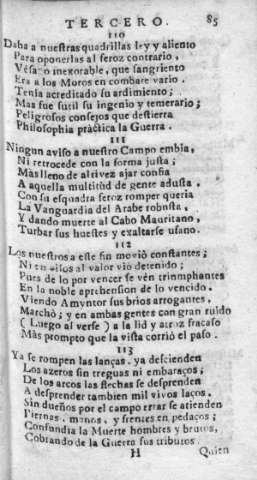 TERCERO. 85
110
Daba a nuestras quadrillas ley y aliento
Para oponerlas al feroz contrario,
inexorable, que sangriento
Era a los Moros en combate vario.
Tenia acreditado su ardimiento;
Mas fue sutil su ingenio y temerario;
Peligrosos consejos que destierra
Philosophia practica la Guerra.
111
Ningun aviso a nuestro Campo embia,
Ni retrocede con la forma justa;
Màs lleno de altivez ajar confia
A aquella multitud de gente adusta.
Con su esquadra feroz romper queria
La Vanguardia del Arabe robusta,
Y dando muerte al Cabo Mauritano,
Turbar sus huestes y exaltarse ufano.
112
Los nuestros a este fin moviò constantes;
Ni en al valor viò detenido;
Pues de lo por vencer se vén trinmphantes
En la noble aprehension de lo vencido.
Viendo Amyntor sus brios arrogantes,
Marchò; y en ambas gentes con gran ruido
( Luego al verse ) a la lid y atroz fracaso
Màs prompto que la vista corriò el paso.
113
Ya se rompen las lanças, ya descienden
Los azeros sin treguas ni embaraços;
De los arcos las flechas se desprenden
A desprender tambien mil vivos laços.
Sin dueños por el campo errar se atienden
Piernas, manos, y frentes en pedaços;
Confundia la Muerte hombres y brutos,
Cobrando de la Guerra sus tributos.
H Quien